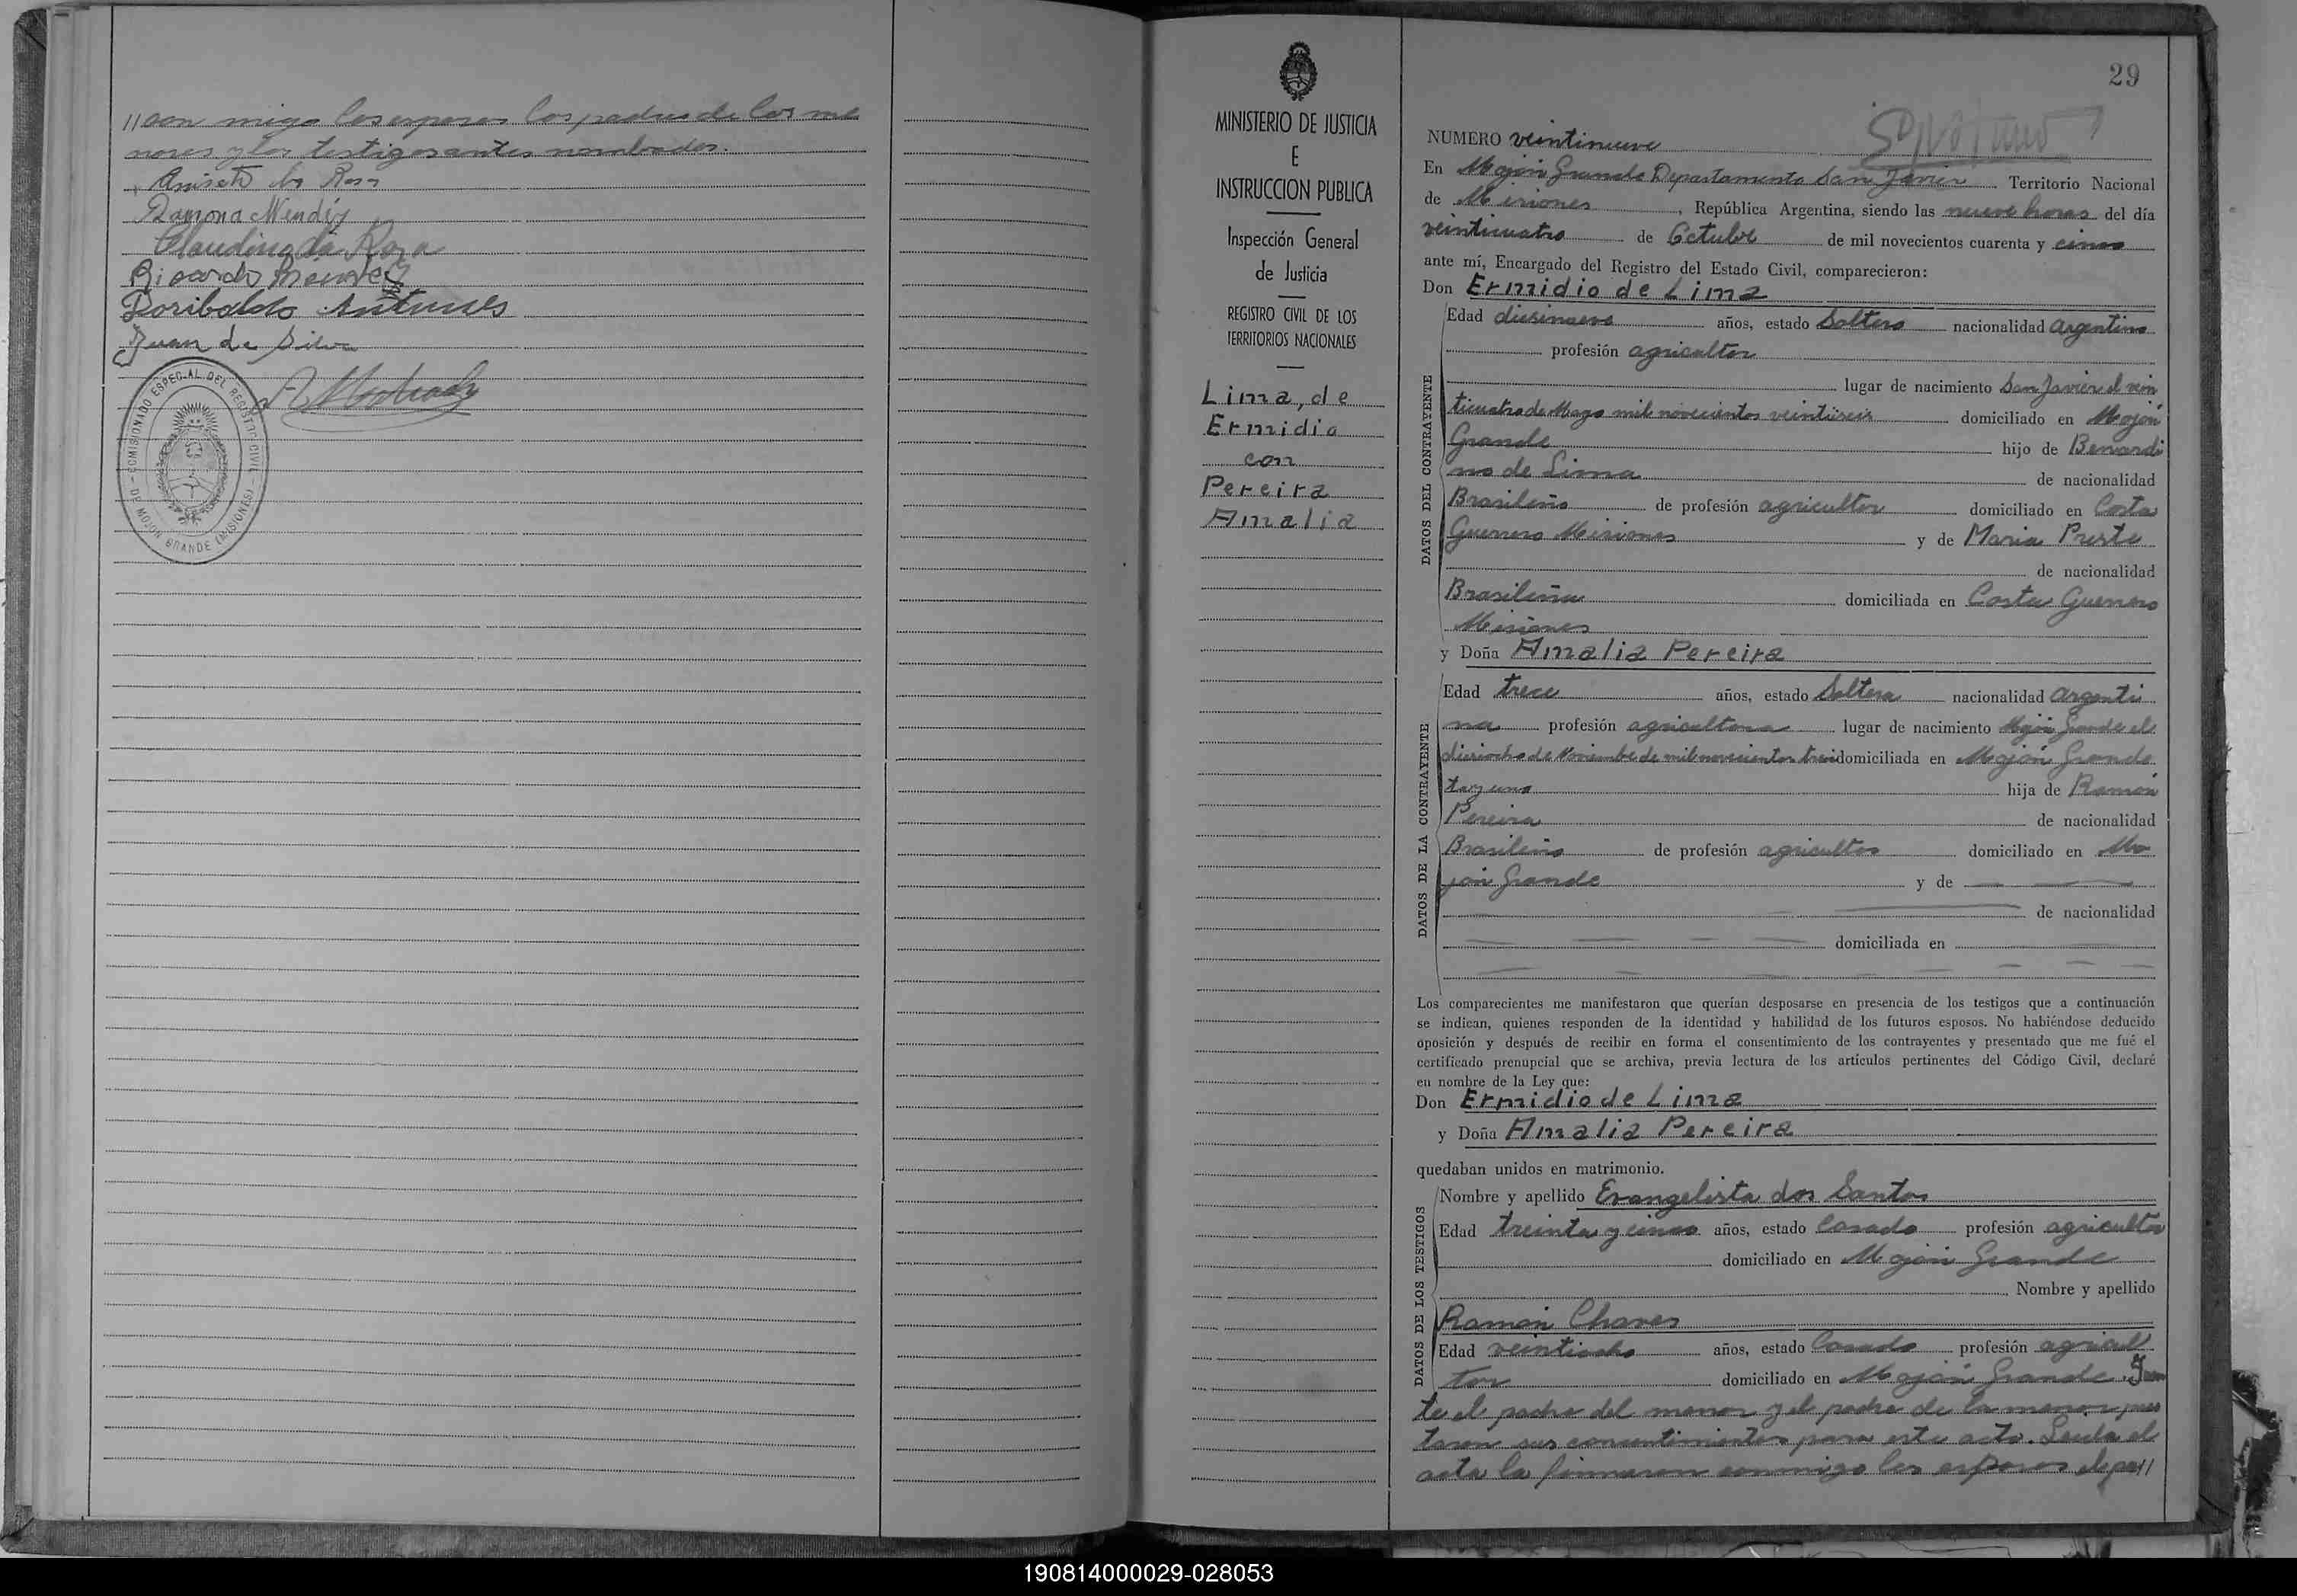 //con migo los esposos los padres de los me
nores y los testigos antes nombrados.
Aniseto da Rosa
Ramona Mendez
Claudino da Roza
Ricardo Mendez
Doribaldo Antunes
Juan de Silva
COMISIONADO ESPECIAL DEL REGISTRO CIVIL
DE MOJON GRANDE (MISIONES)
29
MINISTERIO DE JUSTICIA
E
INSTRUCCION PUBLICA
Inspección General
de Justicia
REGISTRO CIVIL DE LOS
TERRITORIOS NACIONALES
Lima, de
Ermidio
con
Pereira
Amalia
NUMERO veintinueve
En Mojón Grande Departamento San Javier Territorio Nacional
de Misiones, República Argentina, siendo las nueve horas del día
veinticuatro de Octubre de mil novecientos cuarenta y cinco
ante mí, Encargado del Registro del Estado Civil, comparecieron:
Don Ermidio de Lima
DATOS DEL CONTRAYENTE
Edad diesinueve años, estado Soltero nacionalidad argentino
profesión agricultor
lugar de nacimiento San Javier el vein
ticuatro de Mayo mil novecientos veintiseis domiciliado en Mojón
Grande hijo de Benardi
no de Lima de nacionalidad
Brasileño de profesión agricultor domiciliado en Costa
Guerrero Misiones y de Maria Preste
de nacionalidad
Brasileña domiciliada en Costa Guerrero
Misiones
y Doña Amalia Pereira
DATOS DE LA CONTRAYENTE
Edad trece años, estado Soltera nacionalidad argenti
na profesión agricultora lugar de nacimiento Mojón Grande el
diesiocho de Noviembre de mil novecientos trein domiciliada en Mojón Grande
ta y uno hija de Ramón
Pereira de nacionalidad
Brasileño de profesión agricultor domiciliado en Mo
jón Grande y de
de nacionalidad
domiciliada en
Los comparecientes me manifestaron que querían desposarse en presencia de los testigos que a continuación
se indican, quienes responden de la identidad y habilidad de los futuros esposos. No habiéndose deducido
oposición y después de recibir en forma el consentimiento de los contrayentes y presentado que me fué el
certificado prenupcial que se archiva, previa lectura de los artículos pertinentes del Código Civil, declaré
en nombre de la Ley que:
Don Ermidio de Lima
y Doña Amalia Pereira
quedaban unidos en matrimonio.
DATOS DE LOS TESTIGOS
Nombre y apellido Evangelista dos Santos
Edad treinta y cinco años, estado Casado profesión agricultor
domiciliado en Mojón Grande
Nombre y apellido
Ramón Chaves
Edad veintiocho años, estado Casado profesión agricul
tor domiciliado en Mojón Grande.
te el padre del menor y el padre de la menor, pres
taron sus consentimientos para este acto. Leida el
acta la firmaron conmigo los esposos el pa//
190814000029-028053